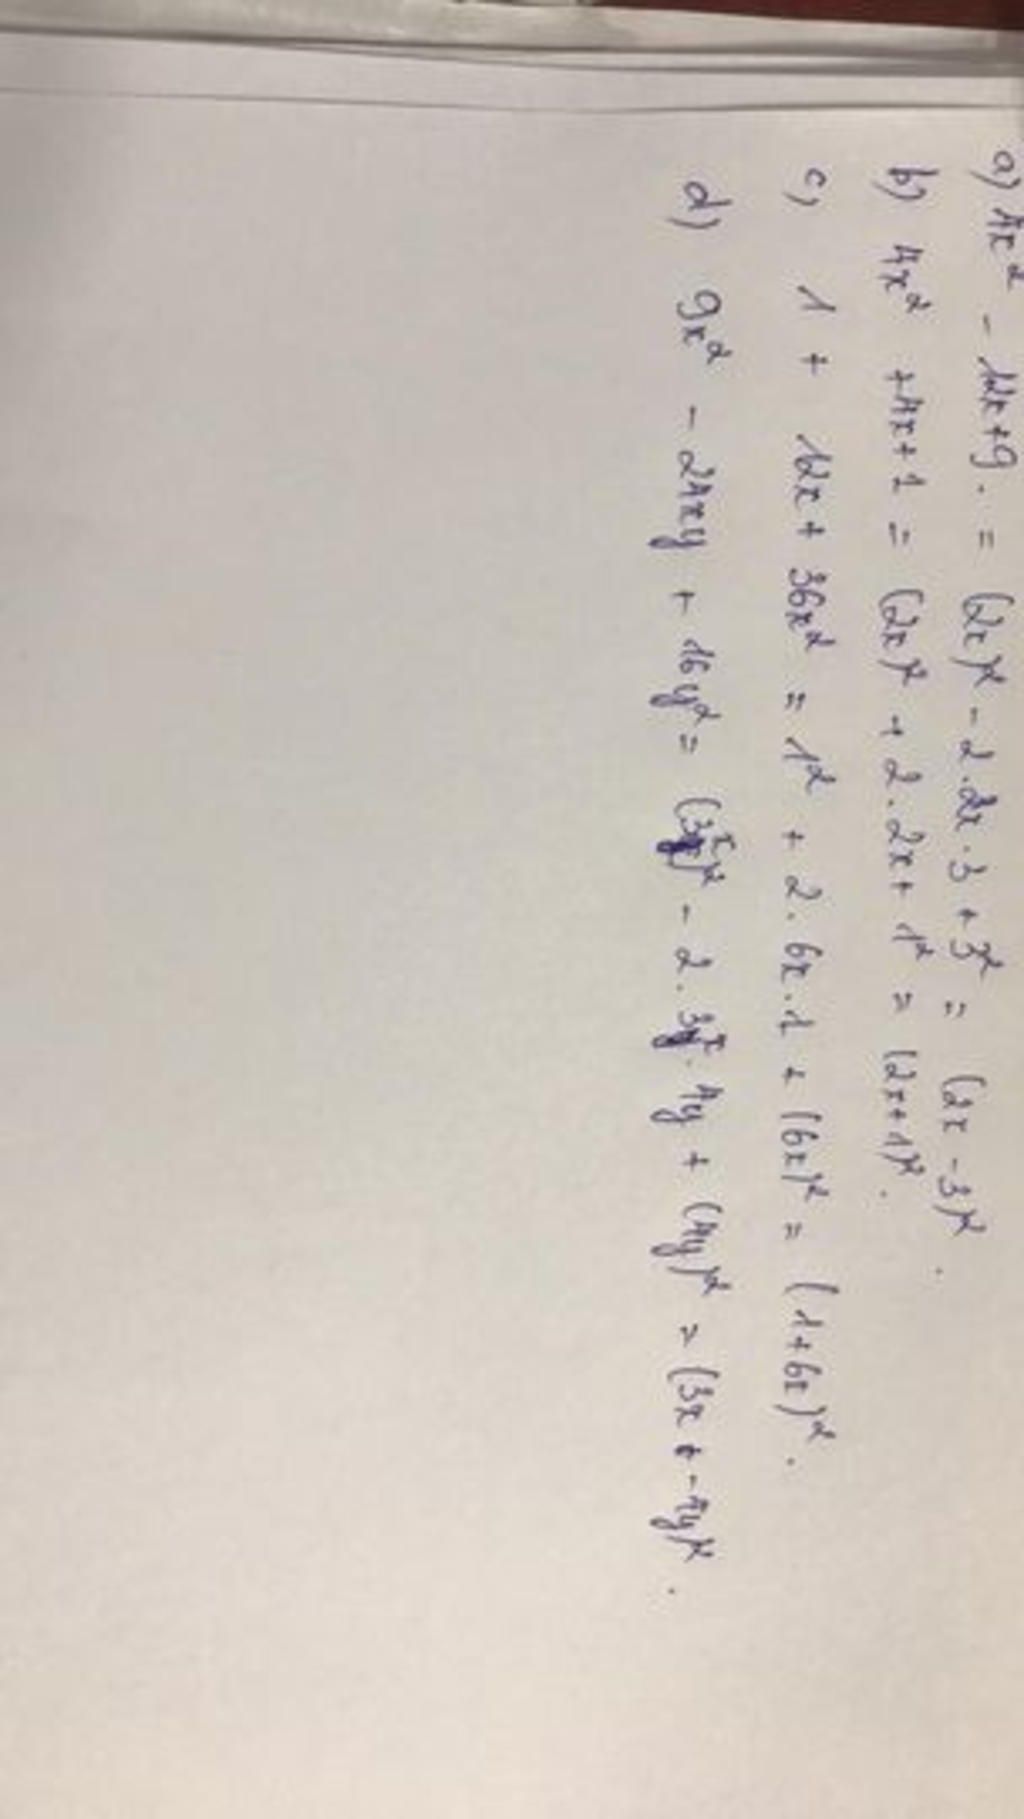 a) 4x² - 12x+9. = (2x)² - 2.2x.3 + 3² = (2x-3)².
b) 4x² +4x+1 = (2x)² + 2.2x+ 1² = (2x+1)².
c) 1 + 12x+ 36x² = 1² + 2.6x.1 + (6x)² = (1+6x)².
d) 9x² - 24xy + 16y² = (3x)² - 2.3x.4y + (4y)² = (3x - 4y)².